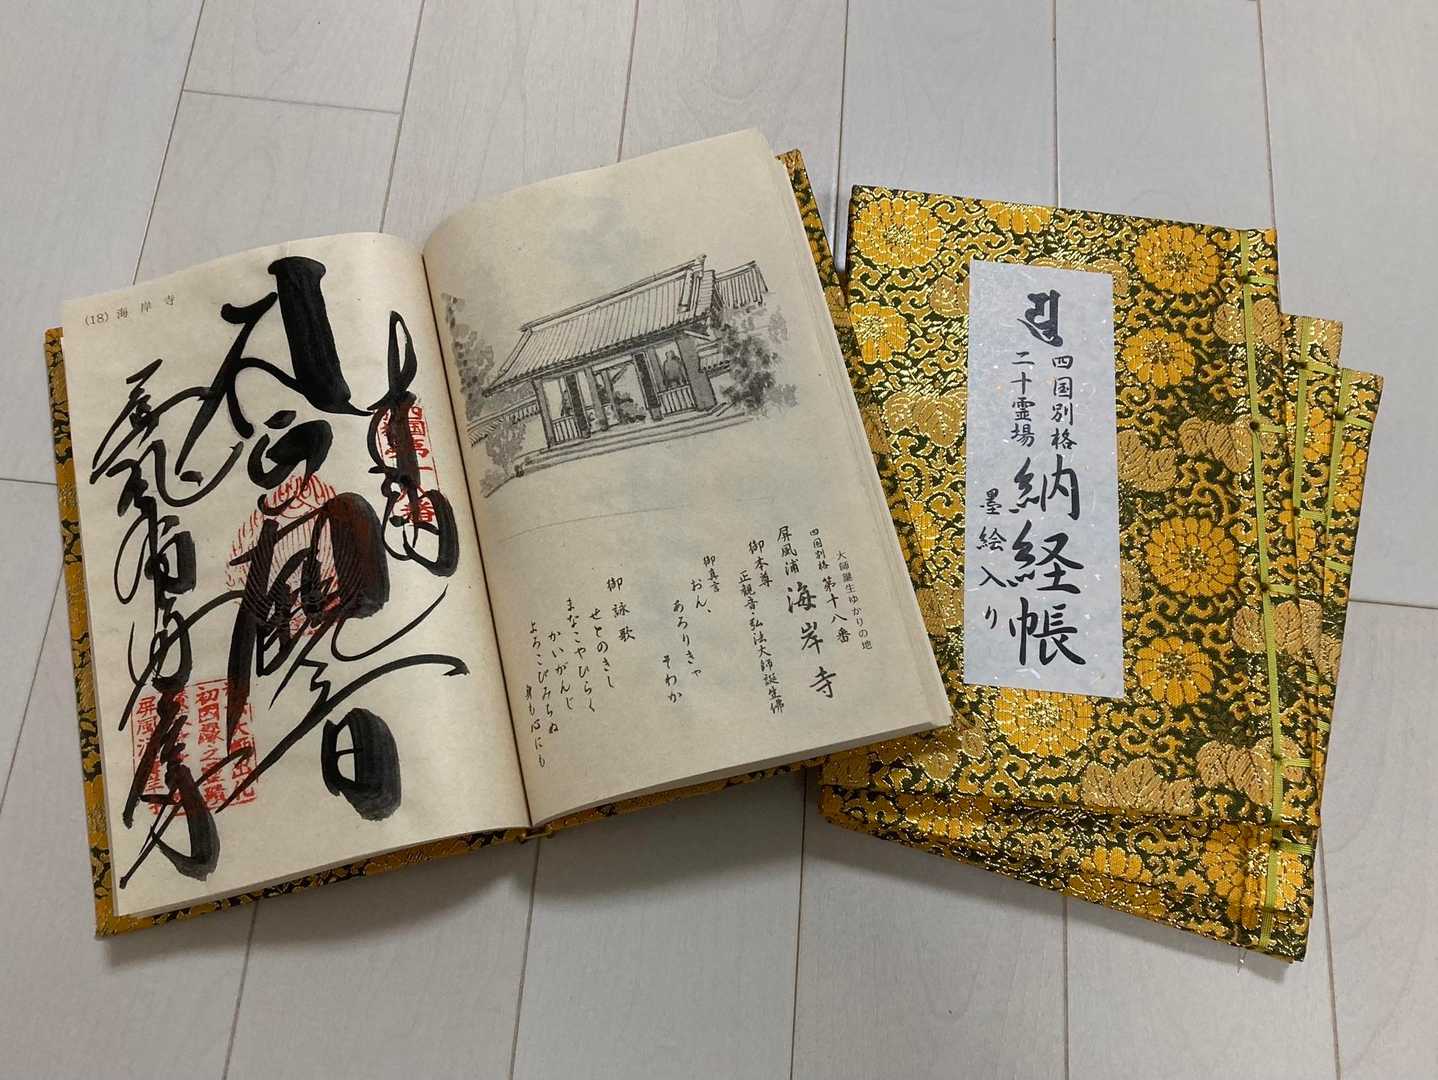 (18) 海岸寺
奉納
正観音
屏風浦海岸寺
四国第十八番
大師誕生ゆかりの地
四国別格 第十八番
屏風浦 海岸寺
御本尊
正観音弘法大師誕生佛
御真言
おん、
あろりきゃ
そわか
御詠歌
せとのきし
まなこやひらく
かいがんじ
よろこびみちぬ
身も心にも
四国別格
二十霊場
納経帳
墨絵入り